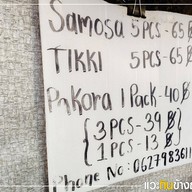 Samosa 5PCS-65฿
TIKKI 5PCS-65฿
Pakora 1 Pack-40฿
{3PCS-39฿}
{1PCS-13฿}
Phone No: 0627983611